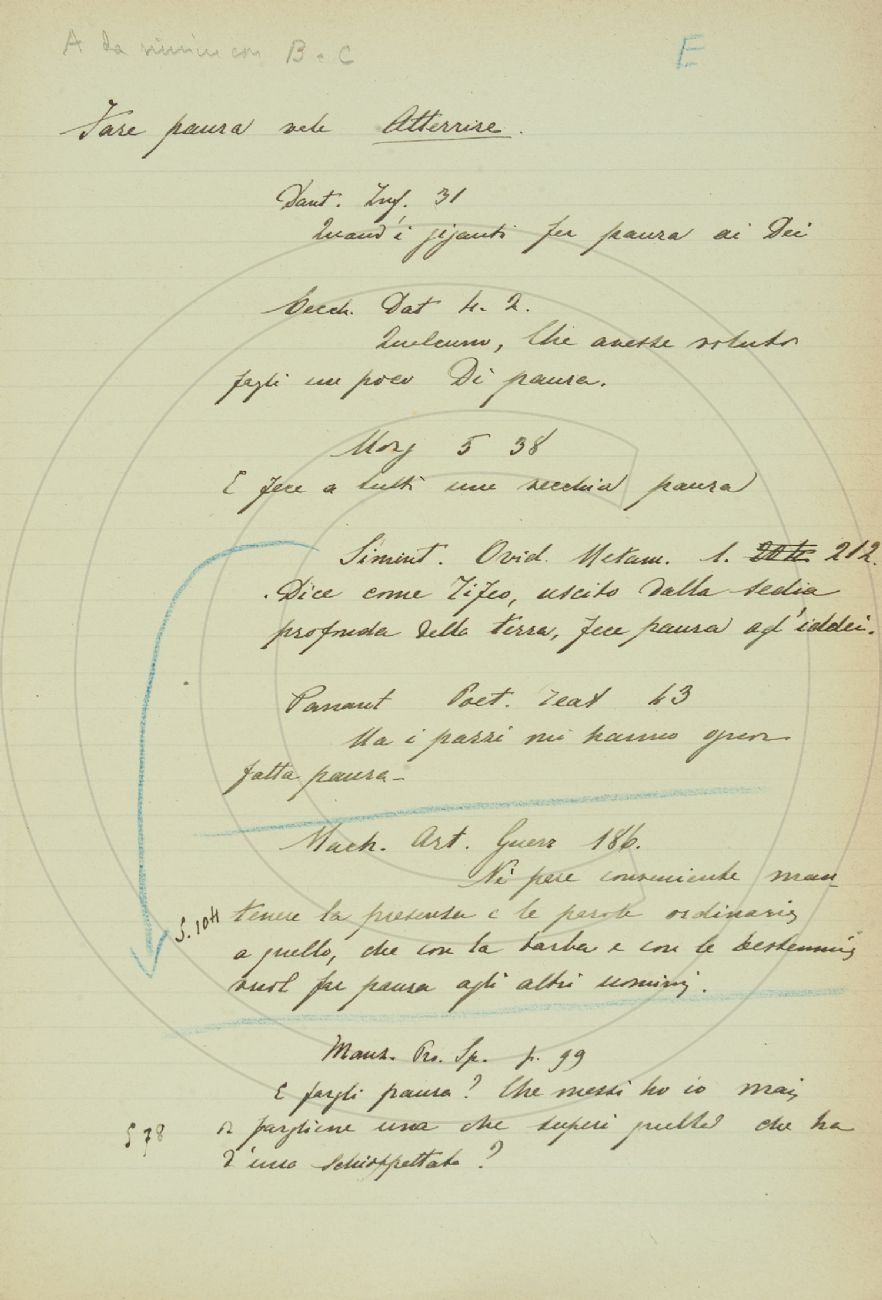 A da riunire con B e C
E
Fare paura vale Atterrire.
Dant. Inf. 31
Quand'i giganti fer paura ai Dei
Cecch. Dot. 4. 2.
Qualcuno, che avesse voluto
fagli un poco di paura.
Morg 5 38
E fece a tutti una vecchia paura
Simint. Ovid. Metam. 1. 212.
Dice come Tifeo, uscito dalla sedia
profonda della terra, fece paura agl'iddei.
Panant Poet. Teat 43
Ma i passi mi hanno gran
fatta paura
Mach. Art. Guerr 186.
Nè pare conveniente man-
S. 104
tenere la presenza e le parole ordinarie
a quello, che con la barba e con le bestemmie
vuol far paura agli altri uomini.
Manz. Pr. Sp. p. 99
E fargli paura? Che mezzi ho io mai
S 78
di fargliene una che superi quella che ha
d'una schioppettata?